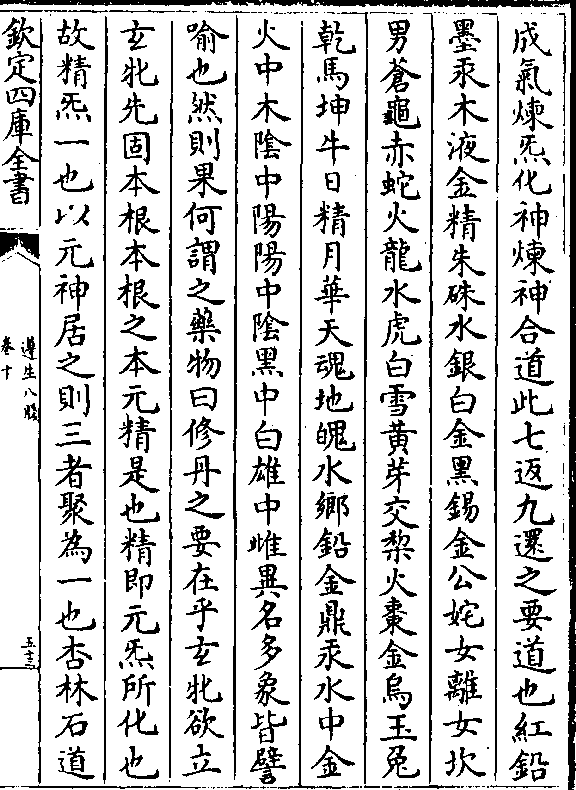 成氣煉炁化神煉神合道此七返九還之要道也紅鉛
墨汞木液金精朱硃水銀白金黑錫金公姹女離女坎
男蒼龜赤蛇火龍水虎白雪黃芽交梨火棗金烏玉兔
乾馬坤牛日精月華天魂地魄水鄉鉛金鼎汞水中金
火中木陰中陽陽中陰黑中白雄中雌異名多象皆譬
喻也然則果何謂之藥物曰修丹之要在乎玄牝欲立
玄牝先固本根本根之本元精是也精即元炁所化也
故精炁一也以元神居之則三者聚為一也杏林石道
欽定四庫全書
遵生八牋
卷十
五十三